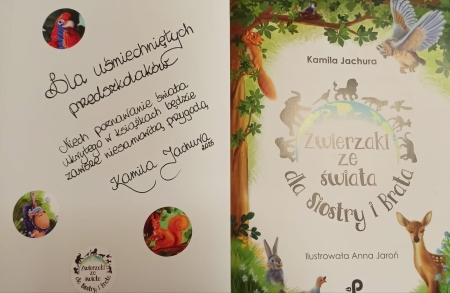 Dla uśmiechniętych
przedszkolaków
Niech poznawanie świata
ukrytego w książkach będzie
zawsze niesamowitą przygodą
Kamila Jachura
2025
Zwierzaki
ze
świata
dla Siostry i Brata
Kamila Jachura
Zwierzaki
ze
świata
dla Siostry i Brata
Ilustrowała Anna Jaroń